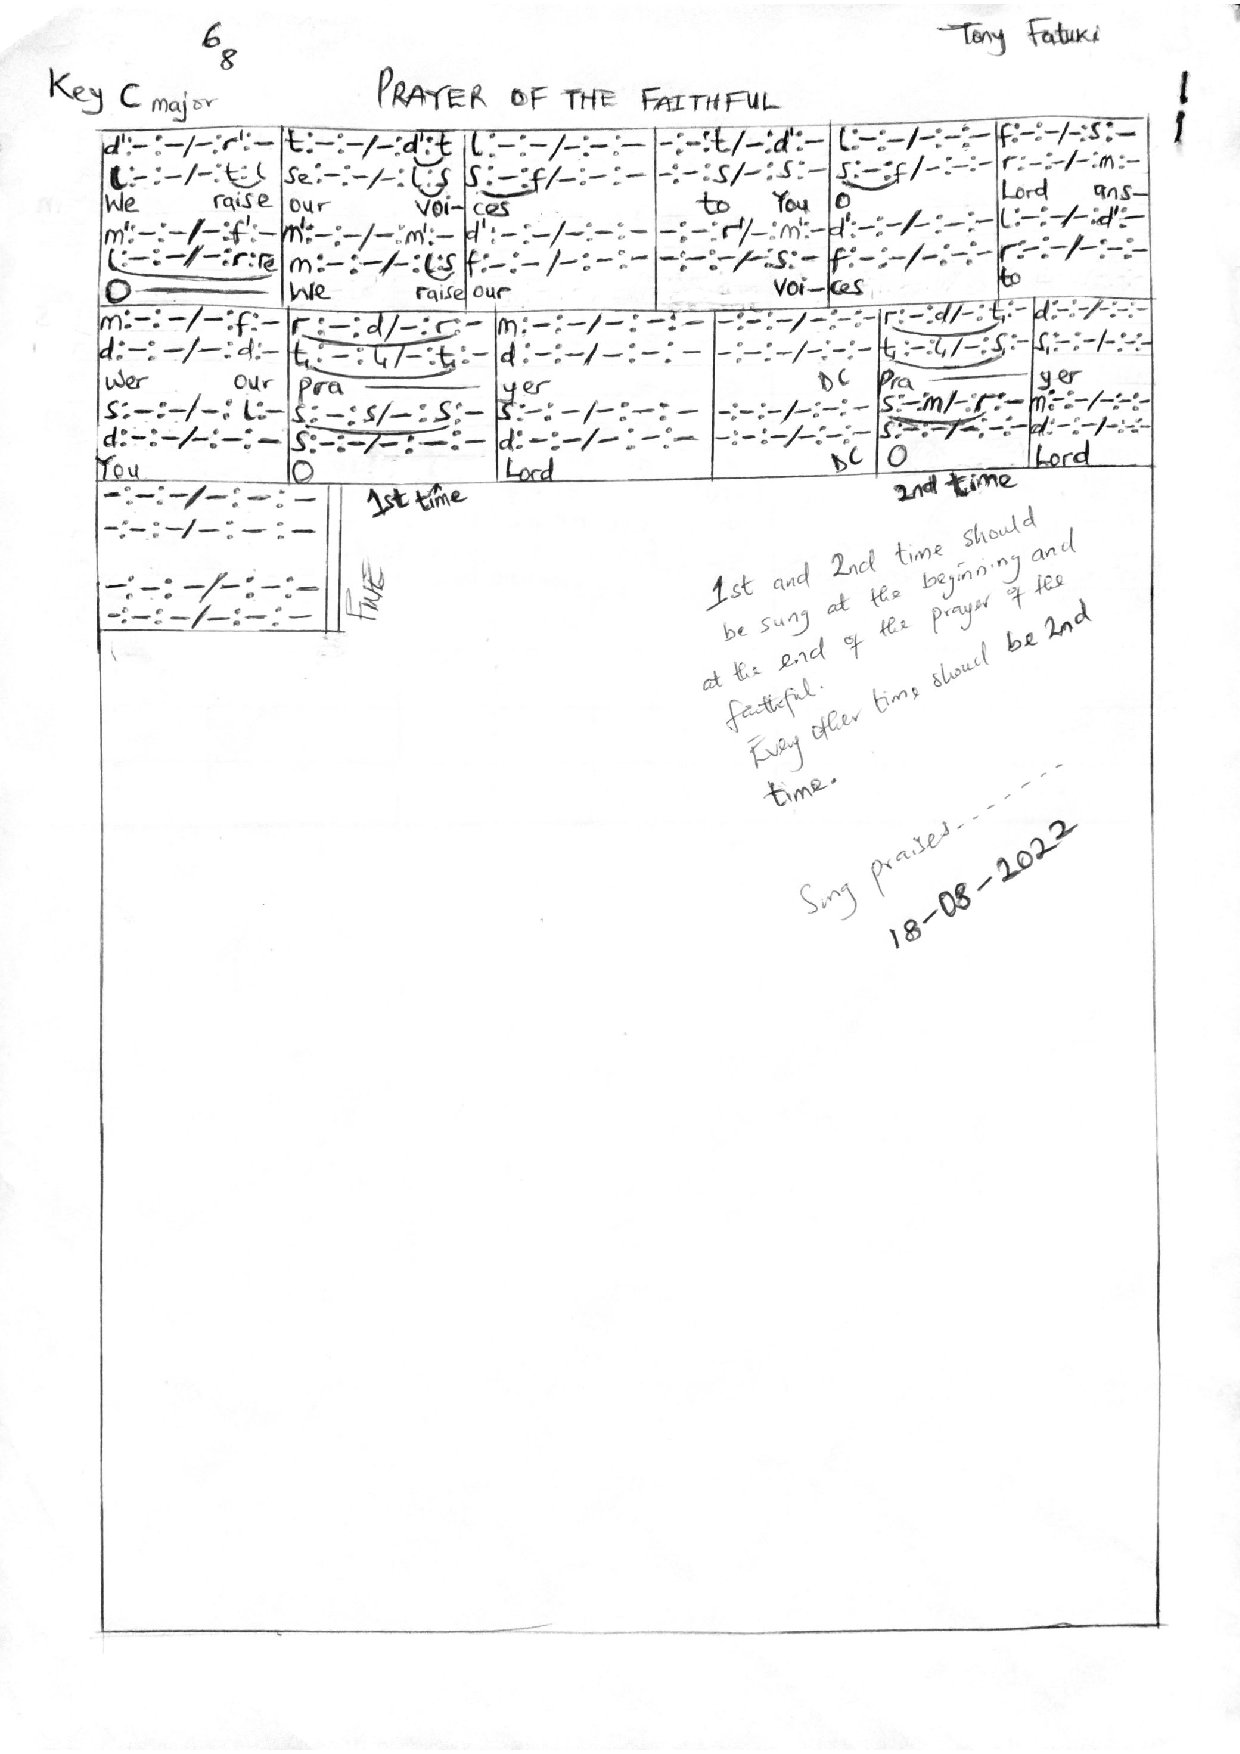 6
8
Tony Fatuki
Key C major
PRAYER OF THE FAITHFUL
d':-:-/-:r':- | t:-:-/-:d':t | l:-:-/-:-:- | -:-:t/-:d':- | l:-:-/-:-:- | f:-:-/-:s:-
l:-:-/-:t:l | se:-:-/-:l:s | s:-:f/-:-:- | -:-:s/-:s:- | s:-:f/-:-:- | r:-:-/-:m:-
We raise our voi- ces to You O Lord ans-
m':-:-/-:f':- | m':-:-/-:m':- | d':-:-/-:-:- | -:-:r'/-:m':- | d':-:-/-:-:- | l:-:-/-:d':-
l:-:-/-:r:re | m:-:-/-:l:s | f:-:-/-:-:- | -:-:-/-:s:- | f:-:-/-:-:- | r:-:-/-:-:-
O We raise our voi- ces to
m:-:-/-:f:- | r:-:d/-:r:- | m:-:-/-:-:- | -:-:-/-:-:- | r:-:d/-:t,:- | d:-:-/-:-:-
d:-:-/-:d:- | t,:-:l,/-:t,:- | d:-:-/-:-:- | -:-:-/-:-:- | t,:-:l,/-:s,:- | s,:-:-/-:-:-
wer our pra yer DC Pra yer
s:-:-/-:l:- | s:-:s/-:s:- | s:-:-/-:-:- | -:-:-/-:-:- | s:-:m/-:r:- | m:-:-/-:-:-
d:-:-/-:-:- | s:-:-/-:-:- | d:-:-/-:-:- | -:-:-/-:-:- | s:-:-/-:-:- | d:-:-/-:-:-
You O Lord DC O Lord
-:-:-/-:-:-
-:-:-/-:-:-
-:-:-/-:-:-
-:-:-/-:-:-
1st time
2nd time
1st and 2nd time should
be sung at the beginning and
at the end of the prayer of the
faithful.
Every other time should be 2nd
time.
Sing praises-------
18-08-2022